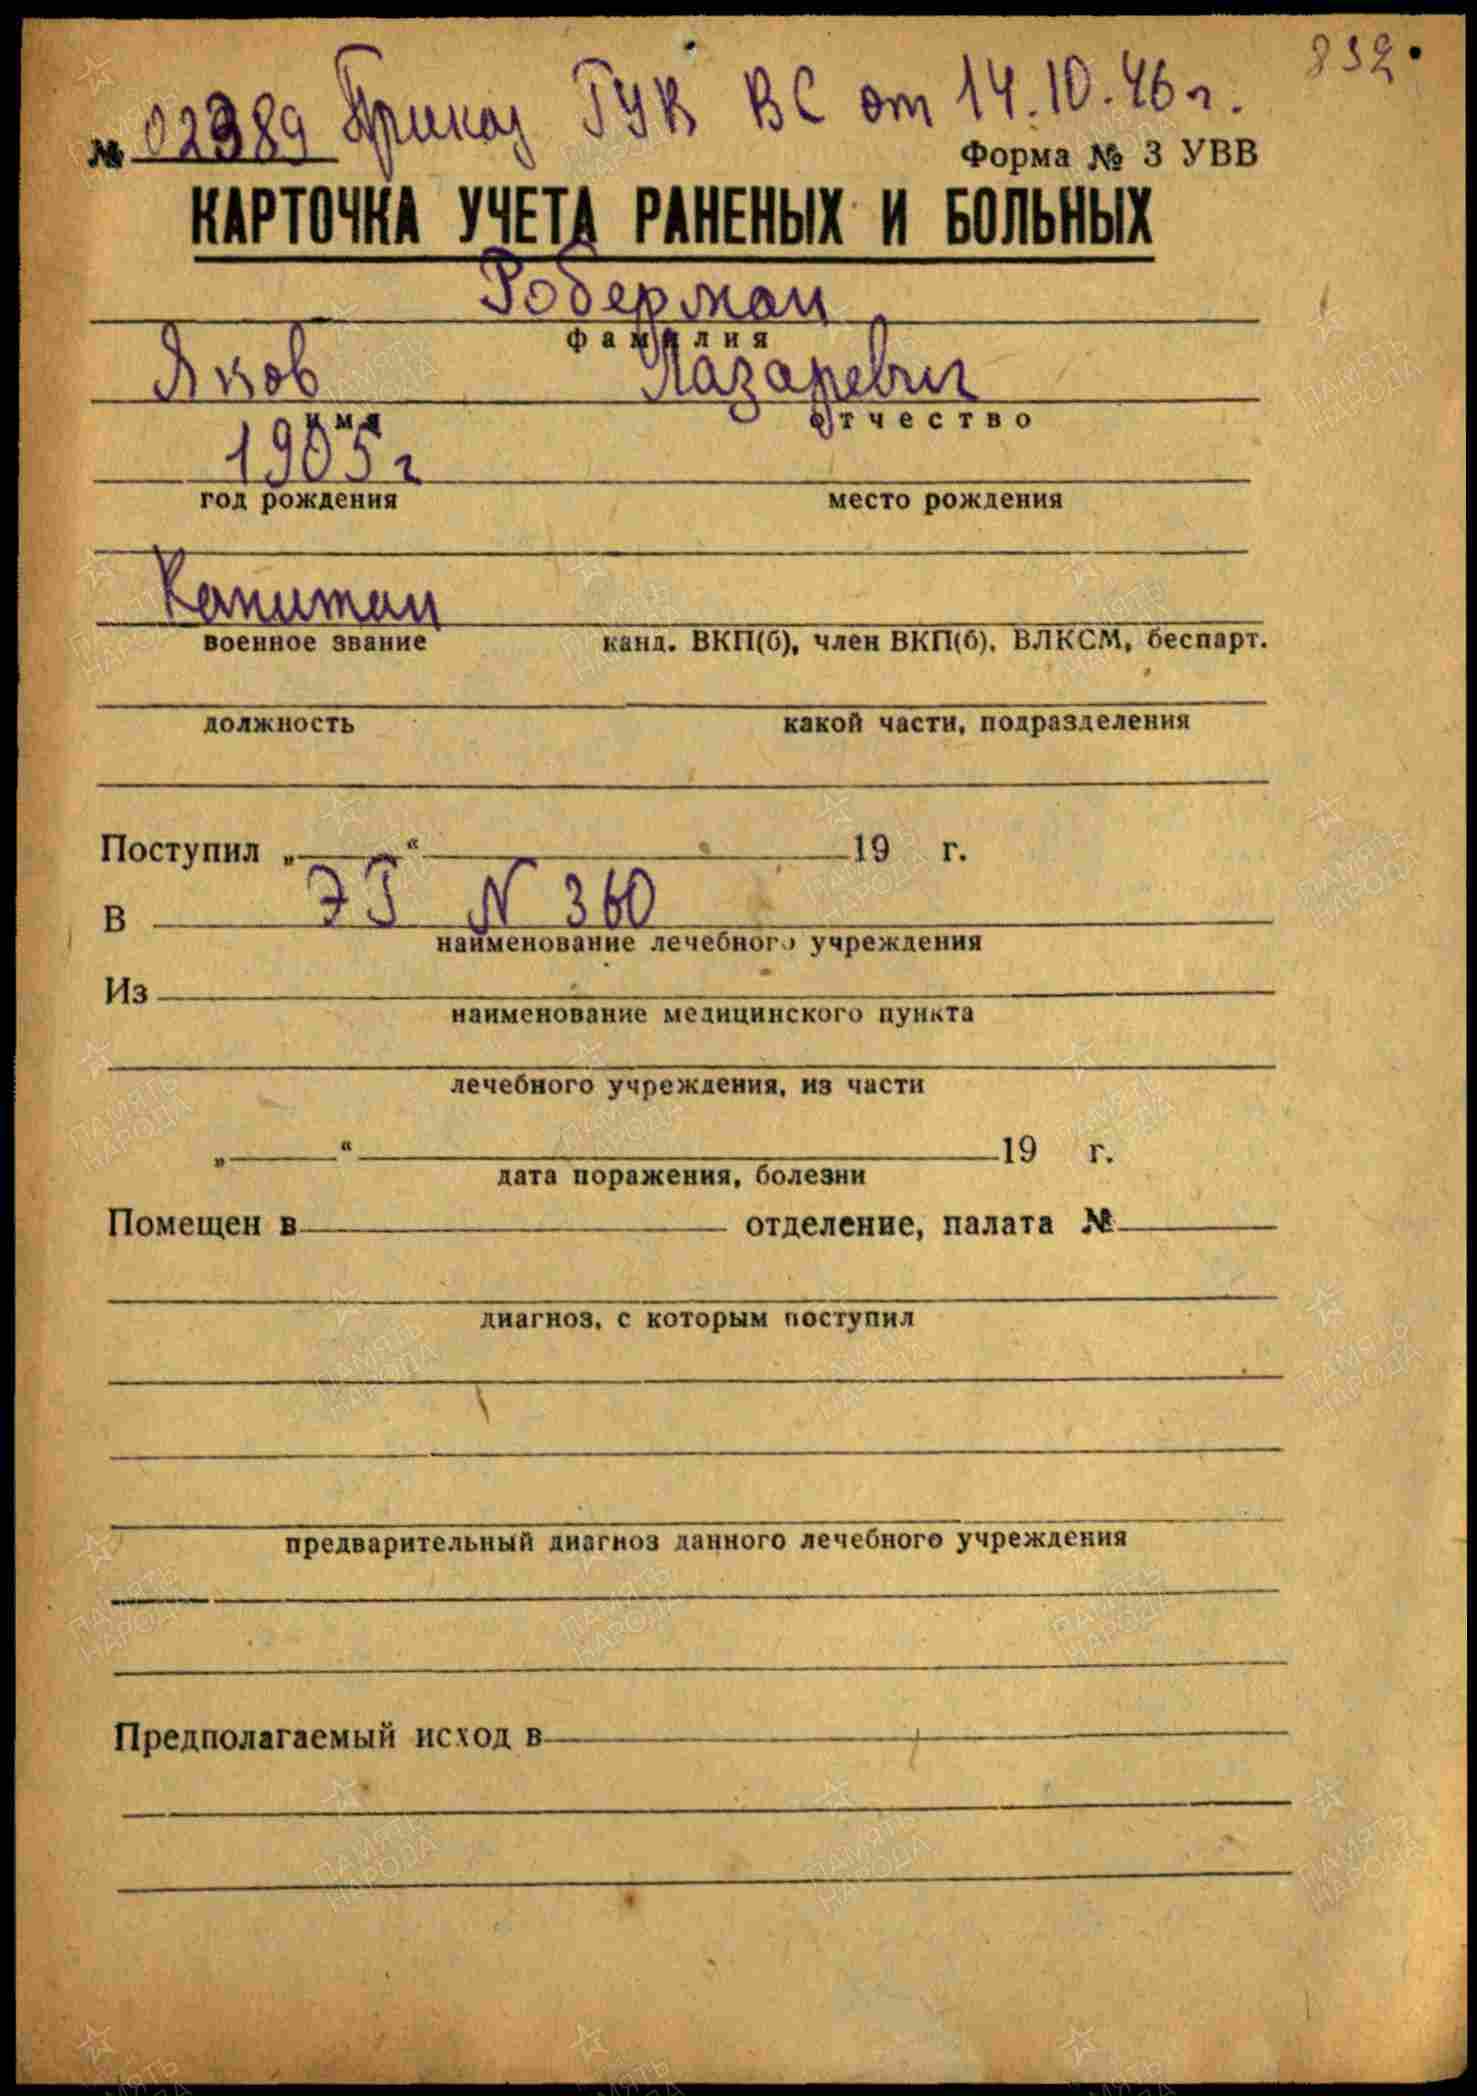 832
№ 02389 Приказ ГУК ВС от 14.10.46 г.
Форма № 3 УВВ
КАРТОЧКА УЧЕТА РАНЕНЫХ И БОЛЬНЫХ
Роберман
фамилия
Яков Лазаревич
имя отчество
1905 г
год рождения место рождения
Капитан
военное звание канд. ВКП(б), член ВКП(б), ВЛКСМ, беспарт.
должность какой части, подразделения
Поступил „ “ 19 г.
В ЭГ N 360
наименование лечебного учреждения
Из
наименование медицинского пункта
лечебного учреждения, из части
„ “ 19 г.
дата поражения, болезни
Помещен в отделение, палата №
диагноз, с которым поступил
предварительный диагноз данного лечебного учреждения
Предполагаемый исход в
ПАМЯТЬ НАРОДА